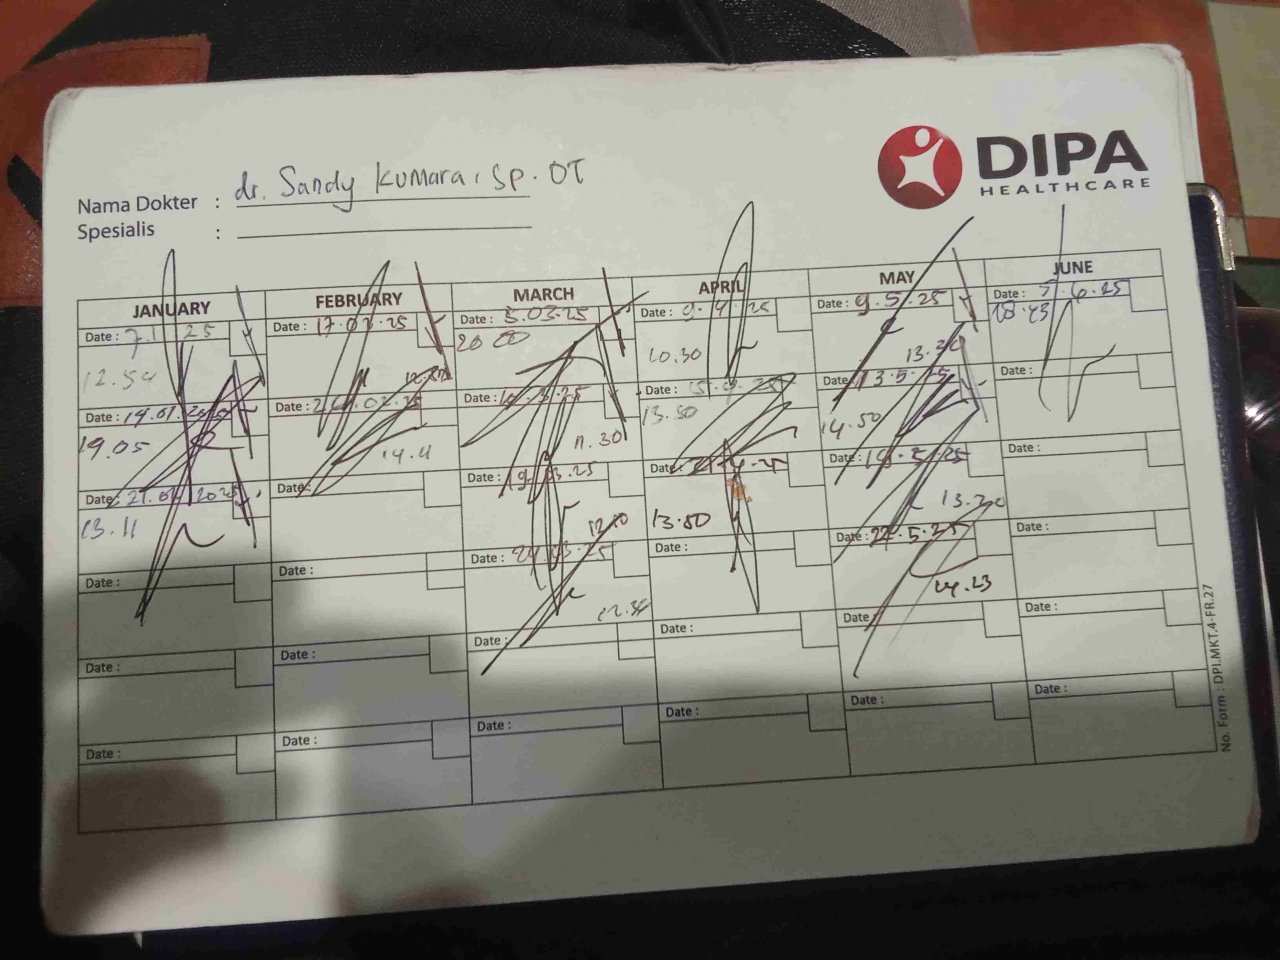 DIPA
HEALTHCARE
Nama Dokter : dr. Sandy Kumara, Sp. OT
Spesialis :
JANUARY
FEBRUARY
MARCH
APRIL
MAY
JUNE
Date : 7.1 25
12.54
Date : 17.02.25
Date : 5.03.25
20 00
Date : 9.4.25
10.30
Date : 9.5.25
13.20
Date : 7.6.25
18.43
Date :
19.05
Date :
14.11
Date :
11.30
Date :
13.50
Date : 13.5.25
14.50
Date :
Date : 21.01.2025
13.11
Date :
Date : 19.03.25
Date :
13.50
Date : 19.5.25
13.20
Date :
Date :
Date :
Date :
Date :
Date : 22.5.25
14.23
Date :
Date :
Date :
Date :
Date :
Date :
Date :
Date :
Date :
Date :
Date :
Date :
Date :
No. Form : DPI.MKT.4-FR.27